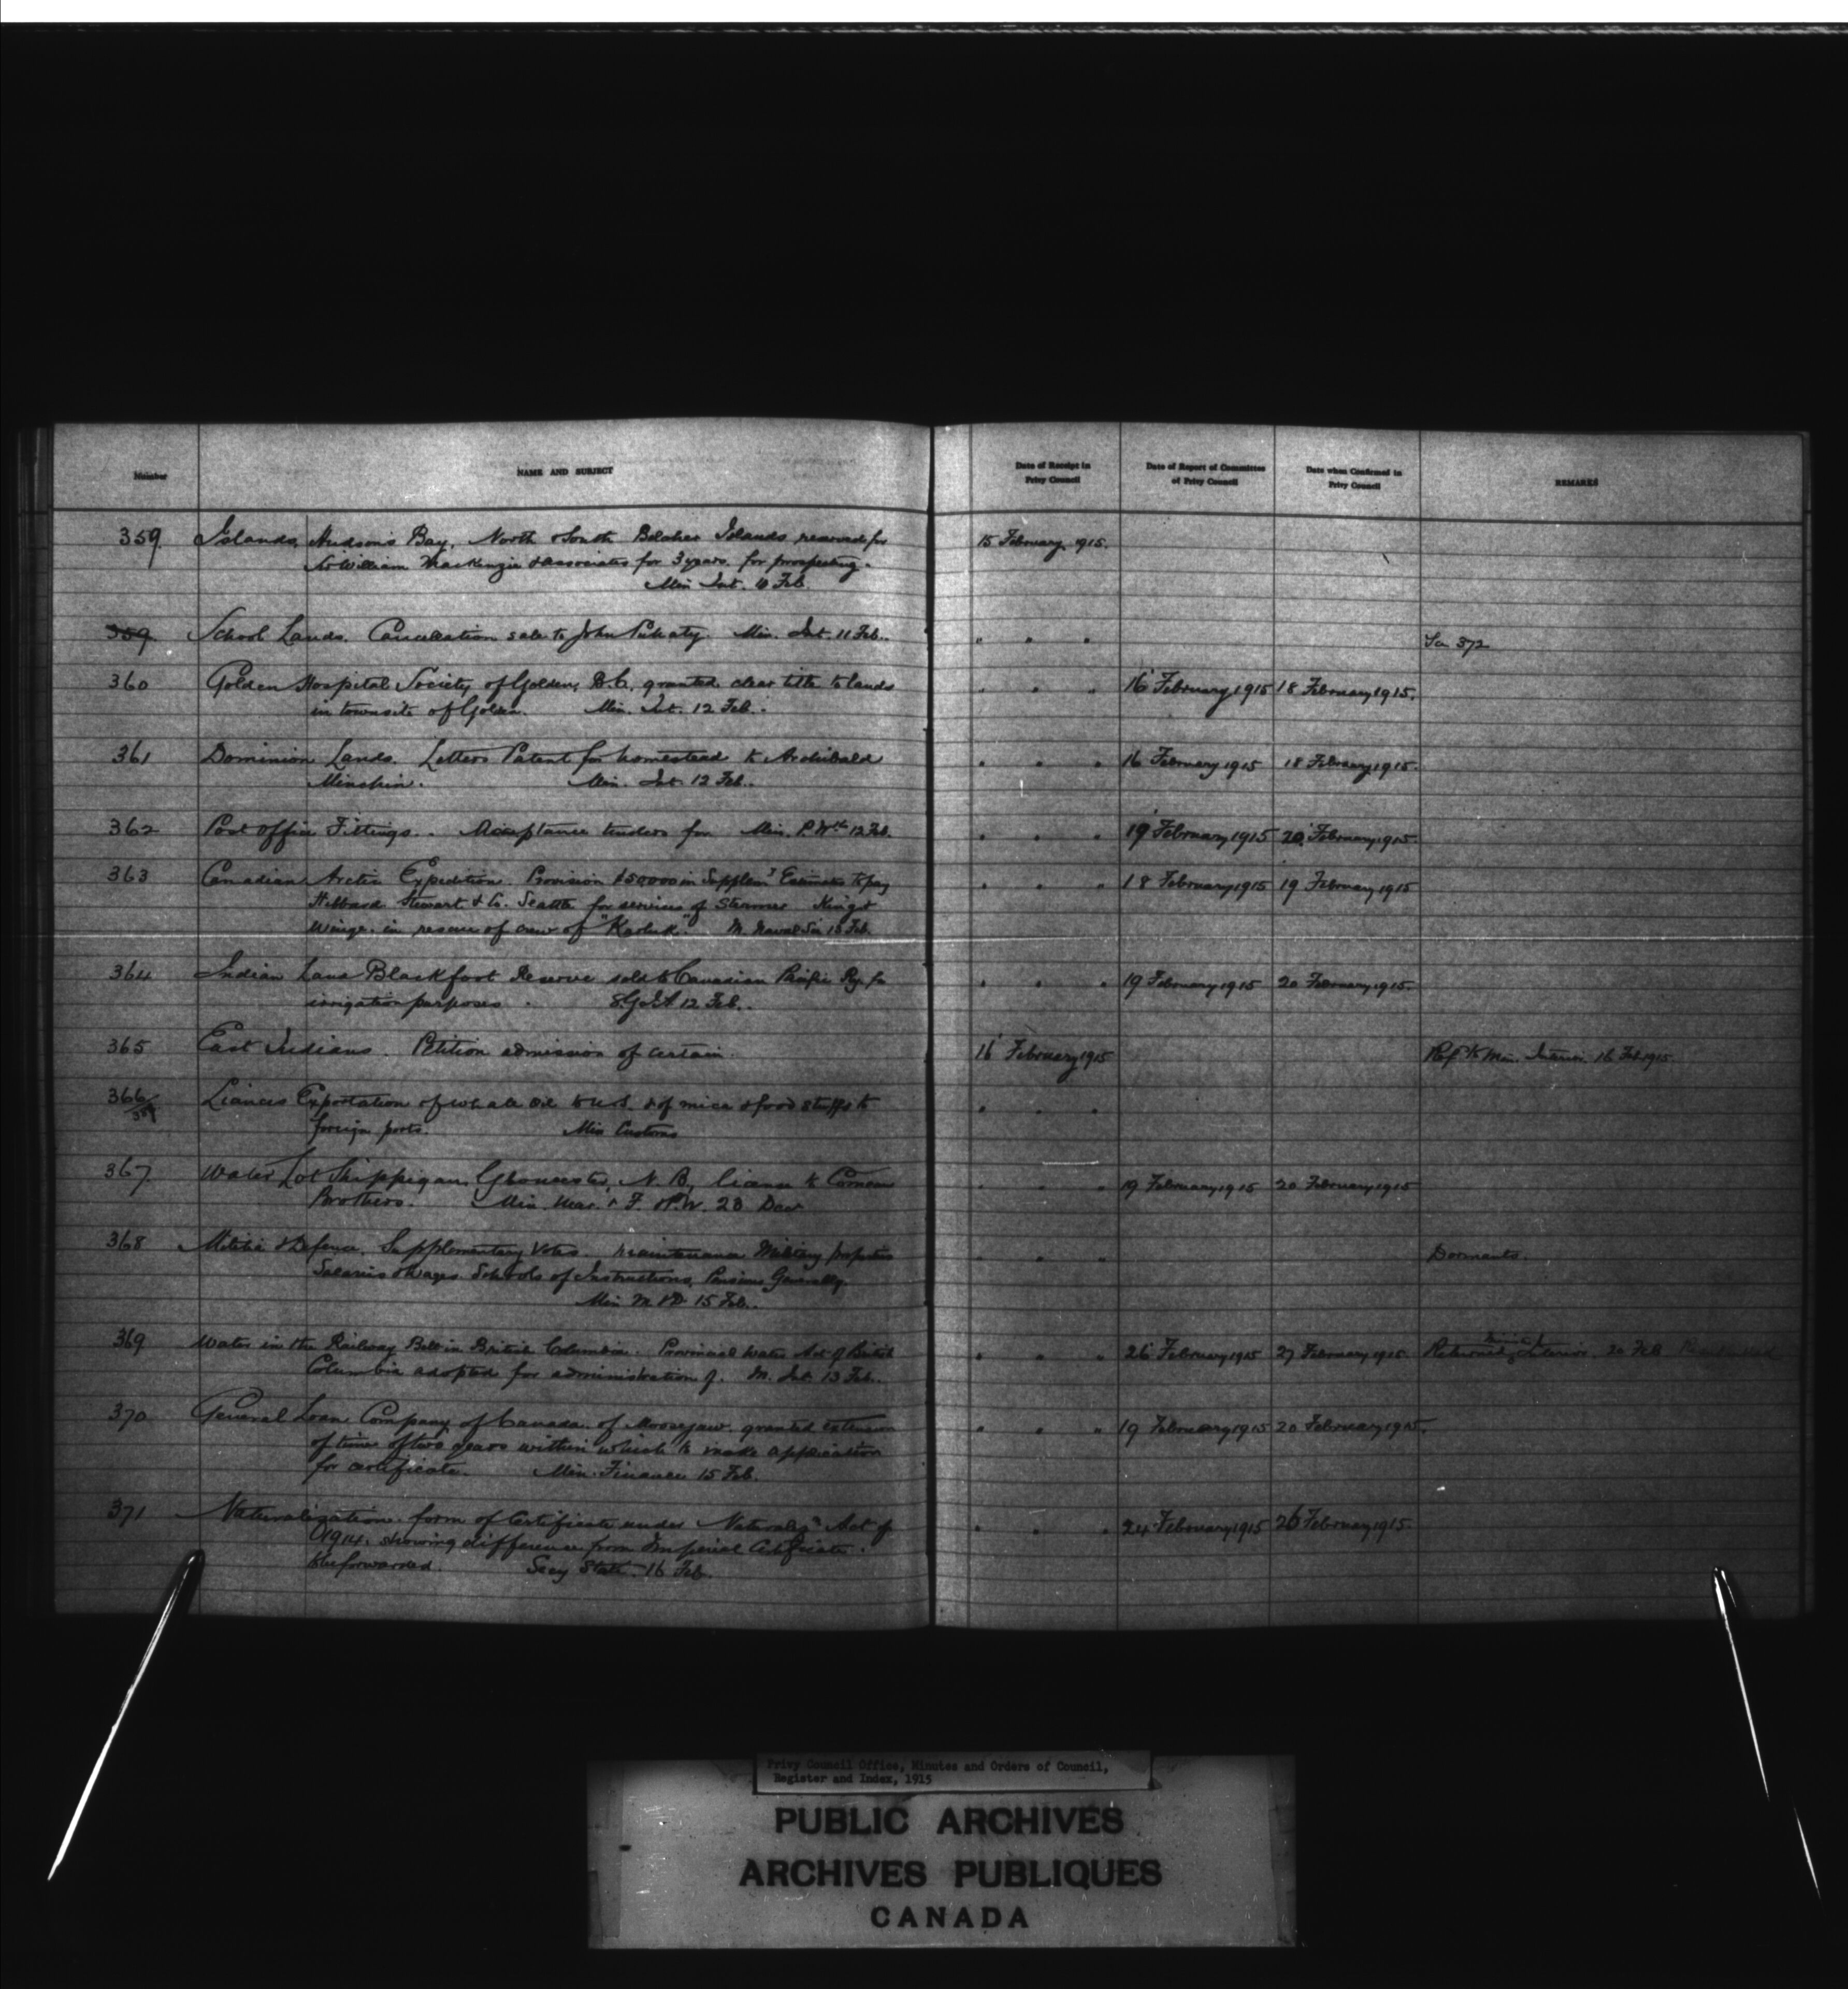 Number
NAME AND SUBJECT
Date of Receipt in Privy Council
Date of Report of Committee of Privy Council
Date when Confirmed in Privy Council
REMARKS
359. Islands, Hudson's Bay, North & South Belcher Islands reserved for 15 February 1915.
Sir William Mackenzie & associates for 3 years for prospecting.
Min Int. 10 Feb
359 School Lands. Cancellation sale to John Min. Int. 11 Feb. " " " See 372
360 Golden Hospital Society of Golden, B.C. granted clear title to lands " " " 16 February 1915 18 February 1915.
in townsite of Golden. Min. Int. 12 Feb.
361 Dominion Lands. Letters Patent for homestead to Archibald " " " 16 February 1915 18 February 1915.
Minchin. Min. Int. 12 Feb.
362 Post Office Fittings. Acceptance tenders for Min. P. Wks 12 Feb. " " " 19 February 1915 20 February 1915.
363 Canadian Arctic Expedition. Provision $50000 in Supplemy Estimates to pay " " " 18 February 1915 19 February 1915
Hibbard Stewart & Co. Seattle for services of Steamer King &
Winge. in rescue of crew of "Karluk." M. Naval Ser 13 Feb.
364 Indian Land Blackfoot Reserve sold to Canadian Pacific Ry. for " " " 19 February 1915 20 February 1915
irrigation purposes. S.G.I.A. 12 Feb.
365 East Indians. Petition admission of certain 16 February 1915 Ref. to Min. Interior 16 Feb 1915
366/ Licences Exportation of whale oil to U.S. & of mica & food stuffs to " " "
foreign ports. Min Customs
367. Water Lot Shippigan, Gloucester, N.B. licence to " " " 19 February 1915 20 February 1915
Brothers. Min. Mar. & F. & P.W. 28 Dec
368 Militia & Defence. Supplementary Votes. Maintenance Military properties " " " Dormants.
Salaries & Wages Schools of Instructions, Pensions Generally
Min M. & D. 15 Feb.
369 Water in the Railway Belt in British Columbia. Provincial Water Act of British " " " 26 February 1915 27 February 1915. Returned to Minister Interior. 20 Feb
Columbia adopted for administration of. M. Int. 13 Feb.
370 General Loan Company of Canada of Moosejaw granted extension " " " 19 February 1915 20 February 1915.
of time of two years within which to make application
for certificate. Min. Finance 15 Feb.
371 Naturalization form of Certificate under Naturalizn Act of " " " 24 February 1915 26 February 1915.
1914. showing difference from Imperial Certificate.
to be forwarded. Secy State 16 Feb.
Privy Council Office, Minutes and Orders of Council,
Register and Index, 1915
PUBLIC ARCHIVES
ARCHIVES PUBLIQUES
CANADA